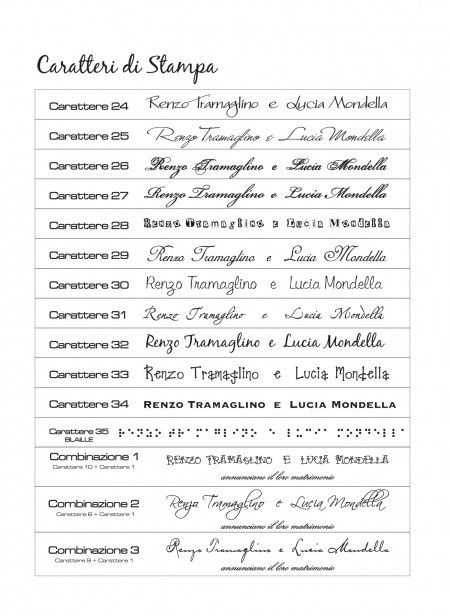 Caratteri di Stampa
Carattere 24 Renzo Tramaglino e Lucia Mondella
Carattere 25 Renzo Tramaglino e Lucia Mondella
Carattere 26 Renzo Tramaglino e Lucia Mondella
Carattere 27 Renzo Tramaglino e Lucia Mondella
Carattere 28 Renzo Tramaglino e Lucia Mondella
Carattere 29 Renzo Tramaglino e Lucia Mondella
Carattere 30 Renzo Tramaglino e Lucia Mondella
Carattere 31 Renzo Tramaglino e Lucia Mondella
Carattere 32 Renzo Tramaglino e Lucia Mondella
Carattere 33 Renzo Tramaglino e Lucia Mondella
Carattere 34 RENZO TRAMAGLINO E LUCIA MONDELLA
Carattere 35
BLAILLE
Combinazione 1 RENZO TRAMAGLINO E LUCIA MONDELLA
Carattere 10 + Carattere 1 annunciano il loro matrimonio
Combinazione 2 Renzo Tramaglino e Lucia Mondella
Carattere 6 + Carattere 1 annunciano il loro matrimonio
Combinazione 3 Renzo Tramaglino e Lucia Mondella
Carattere 9 + Carattere 1 annunciano il loro matrimonio